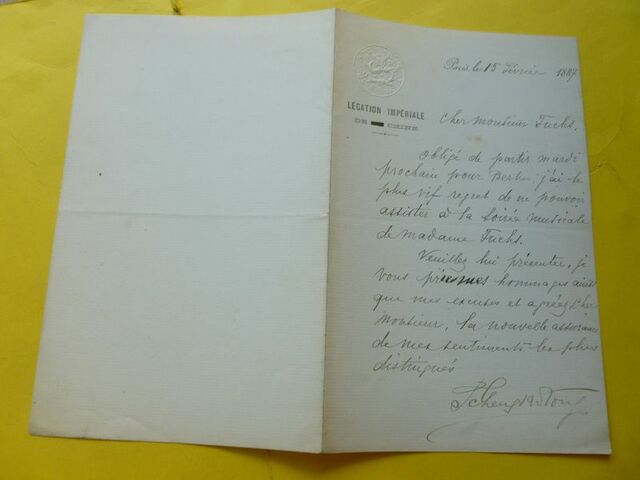 Paris le 15 février 1887
LÉGATION IMPÉRIALE
DE CHINE
Cher Monsieur Fuchs.
Obligé de partir mardi
prochain pour Berlin, j'ai le
plus vif regret de ne pouvoir
assister à la soirée musicale
de Madame Fuchs.
Veuillez lui présenter, je
vous prie mes hommages ainsi
que mes excuses et agréez Cher
Monsieur, la nouvelle assurance
de mes sentiments les plus
distingués
Tcheng Ki Tong